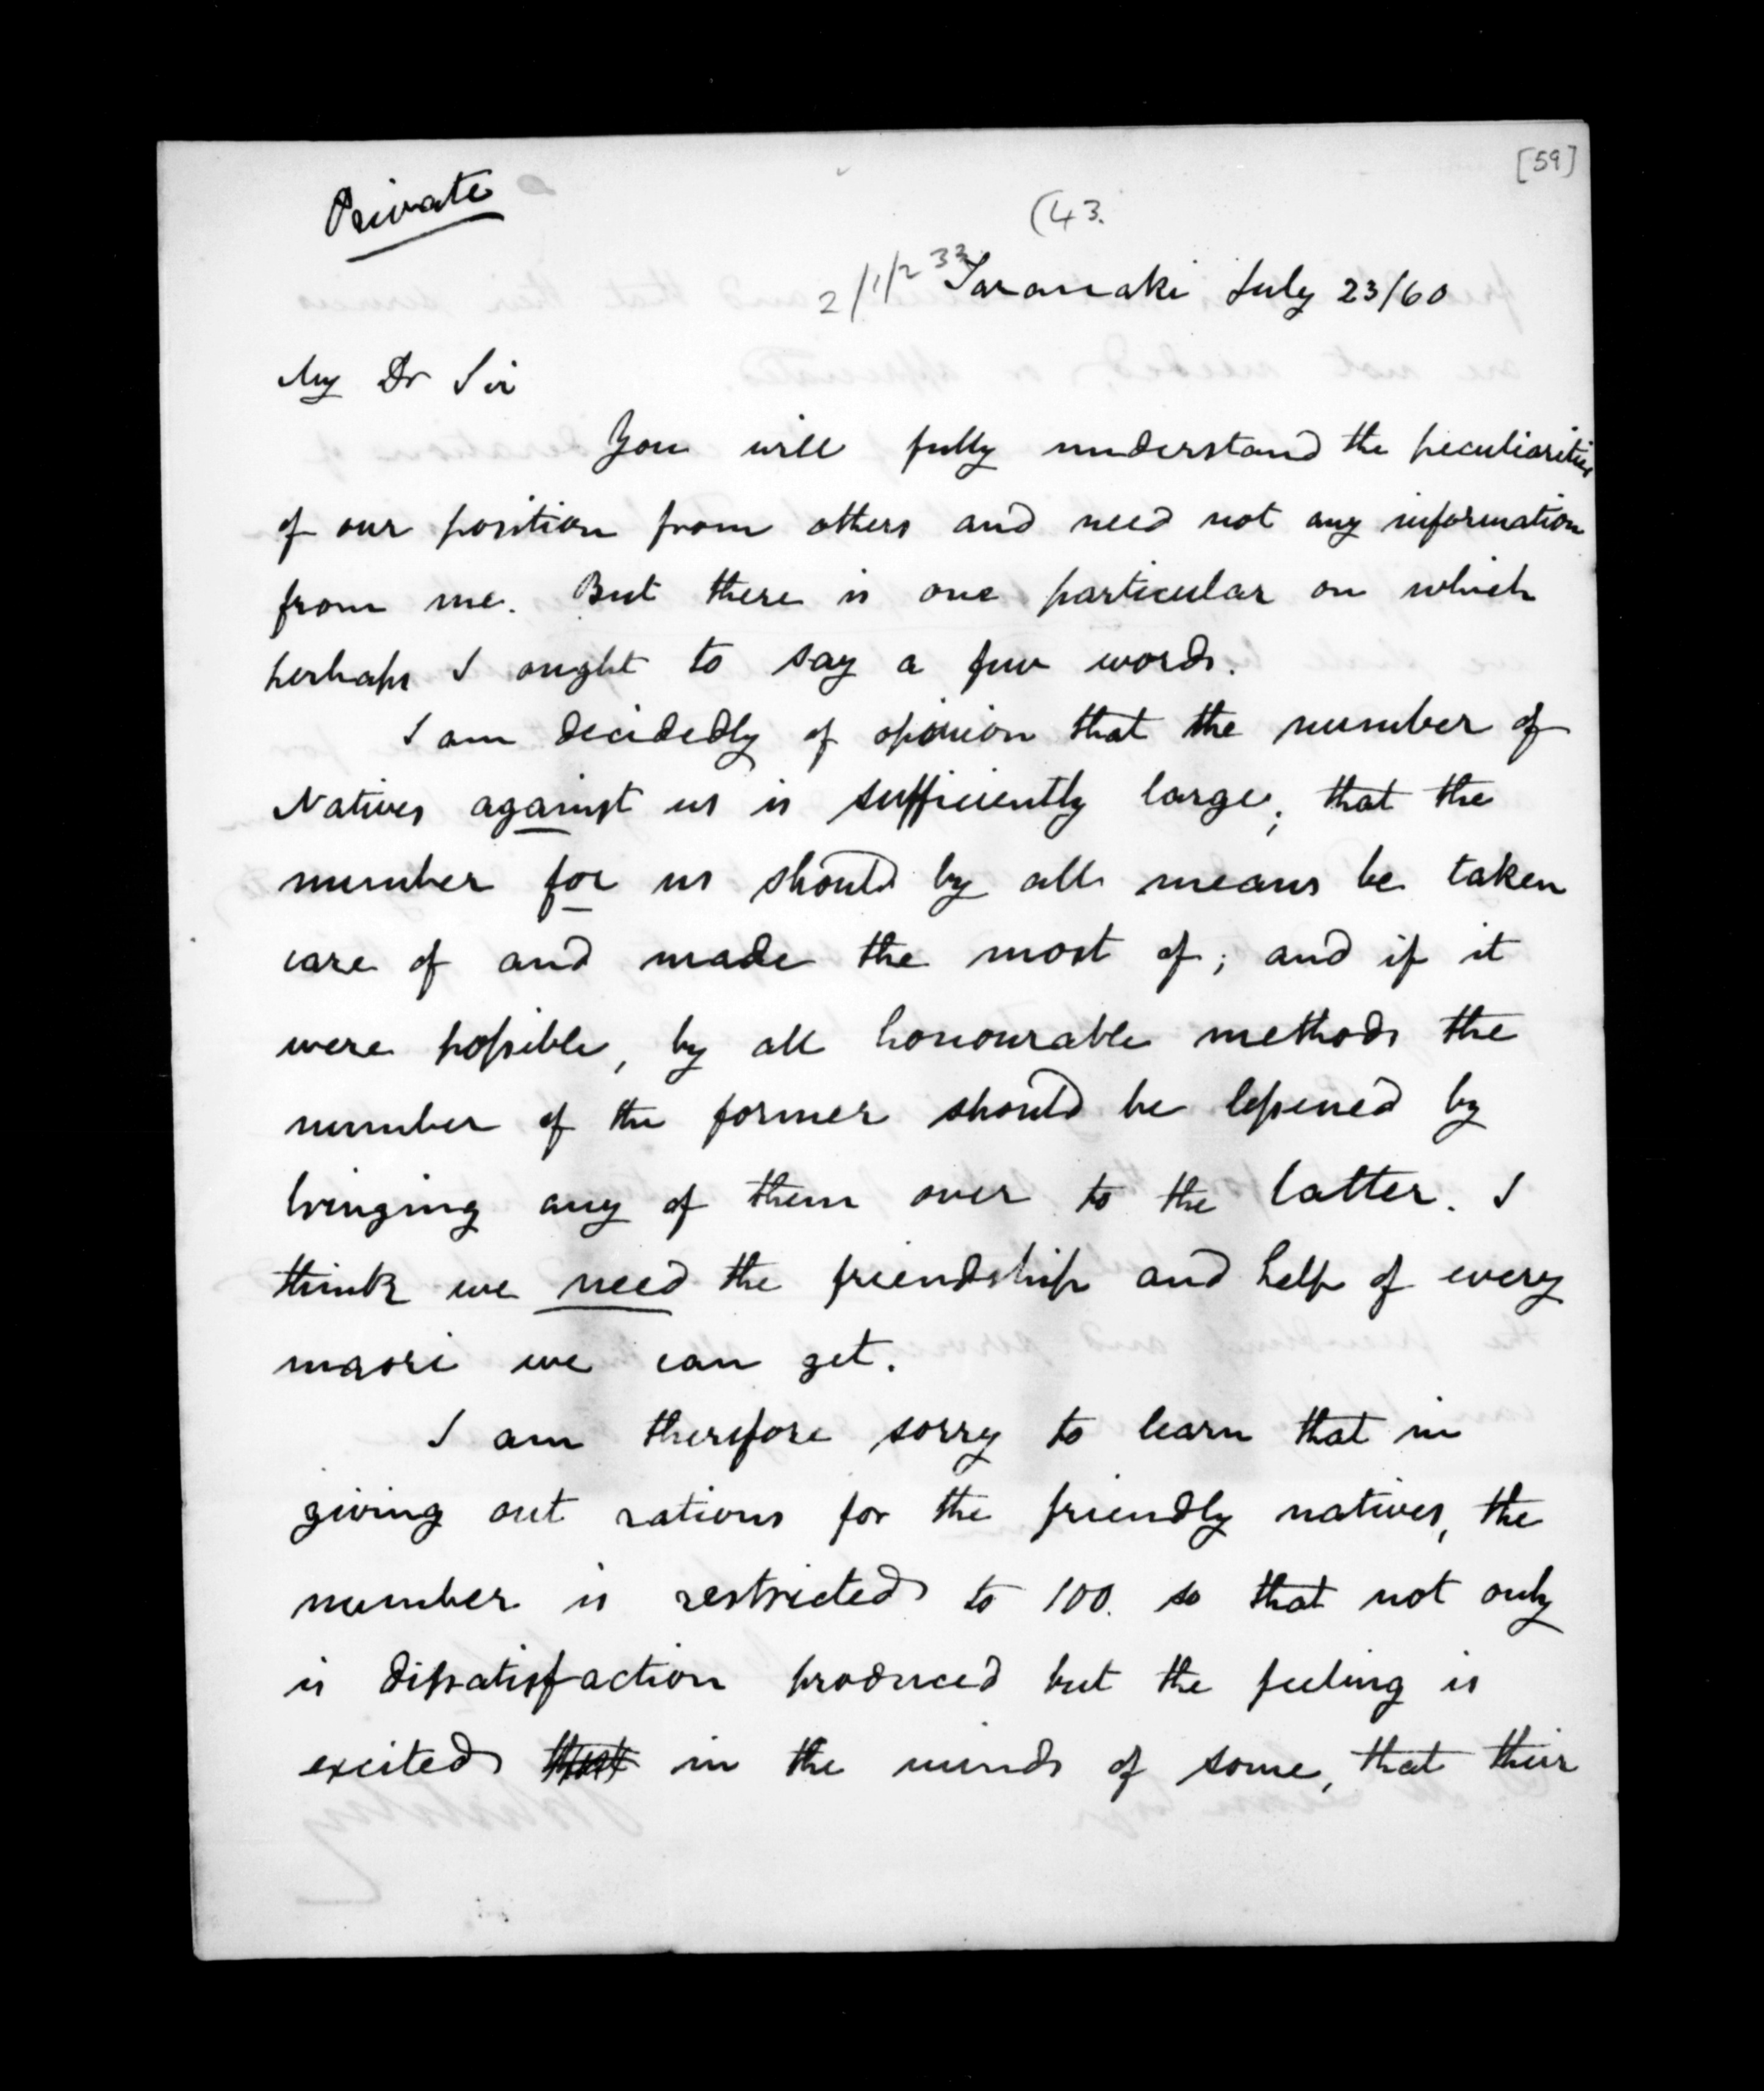 [59]
Private
(43.
2/1/2 33
Taranaki July 23/60
My Dr Sir
You will fully understand the peculiarities
of our position from others and need not any information
from me. But there is one particular on which
perhaps I ought to say a few words.
I am decidedly of opinion that the number of
Natives against us is sufficiently large; that the
number for us should by all means be taken
care of and made the most of; and if it
were possible, by all honourable methods the
number of the former should be lessened by
bringing any of them over to the latter. I
think we need the friendship and help of every
maori we can get.
I am therefore sorry to learn that in
giving out rations for the friendly natives, the
number is restricted to 100. so that not only
is dissatisfaction produced but the feeling is
excited that in the minds of some, that their